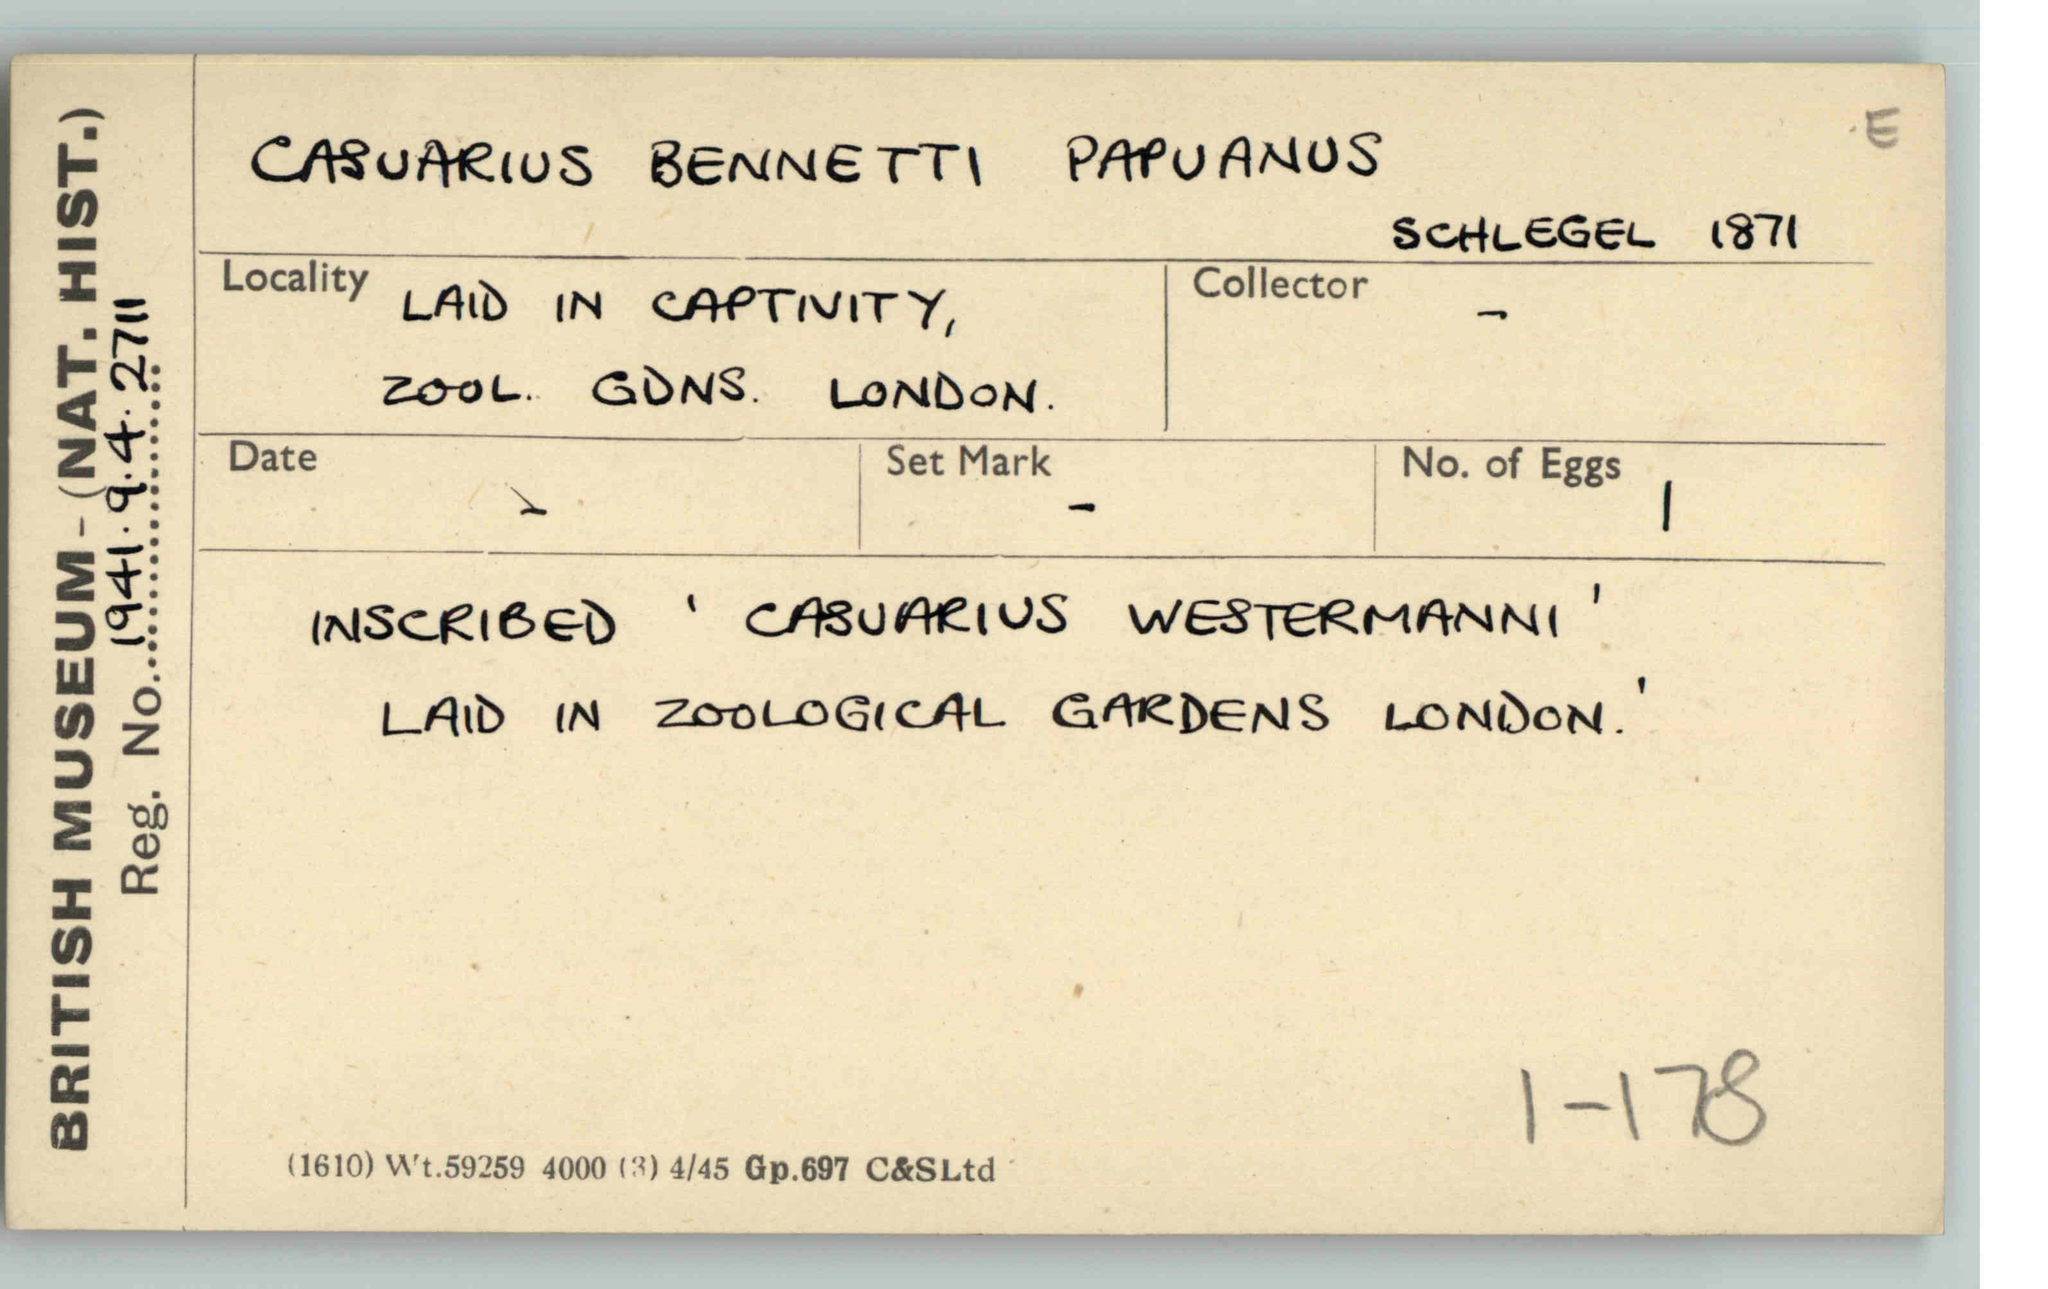 BRITISH MUSEUM - (NAT. HIST.)
Reg. No. 1941.9.4.2711
E
CASUARIUS BENNETTI PAPUANUS
SCHLEGEL 1871
Locality LAID IN CAPTIVITY,
ZOOL. GDNS. LONDON.
Collector -
Date -
Set Mark -
No. of Eggs 1
INSCRIBED ' CASUARIUS WESTERMANNI '
LAID IN ZOOLOGICAL GARDENS LONDON.'
1-178
(1610) Wt.59259 4000 (3) 4/45 Gp.697 C&SLtd